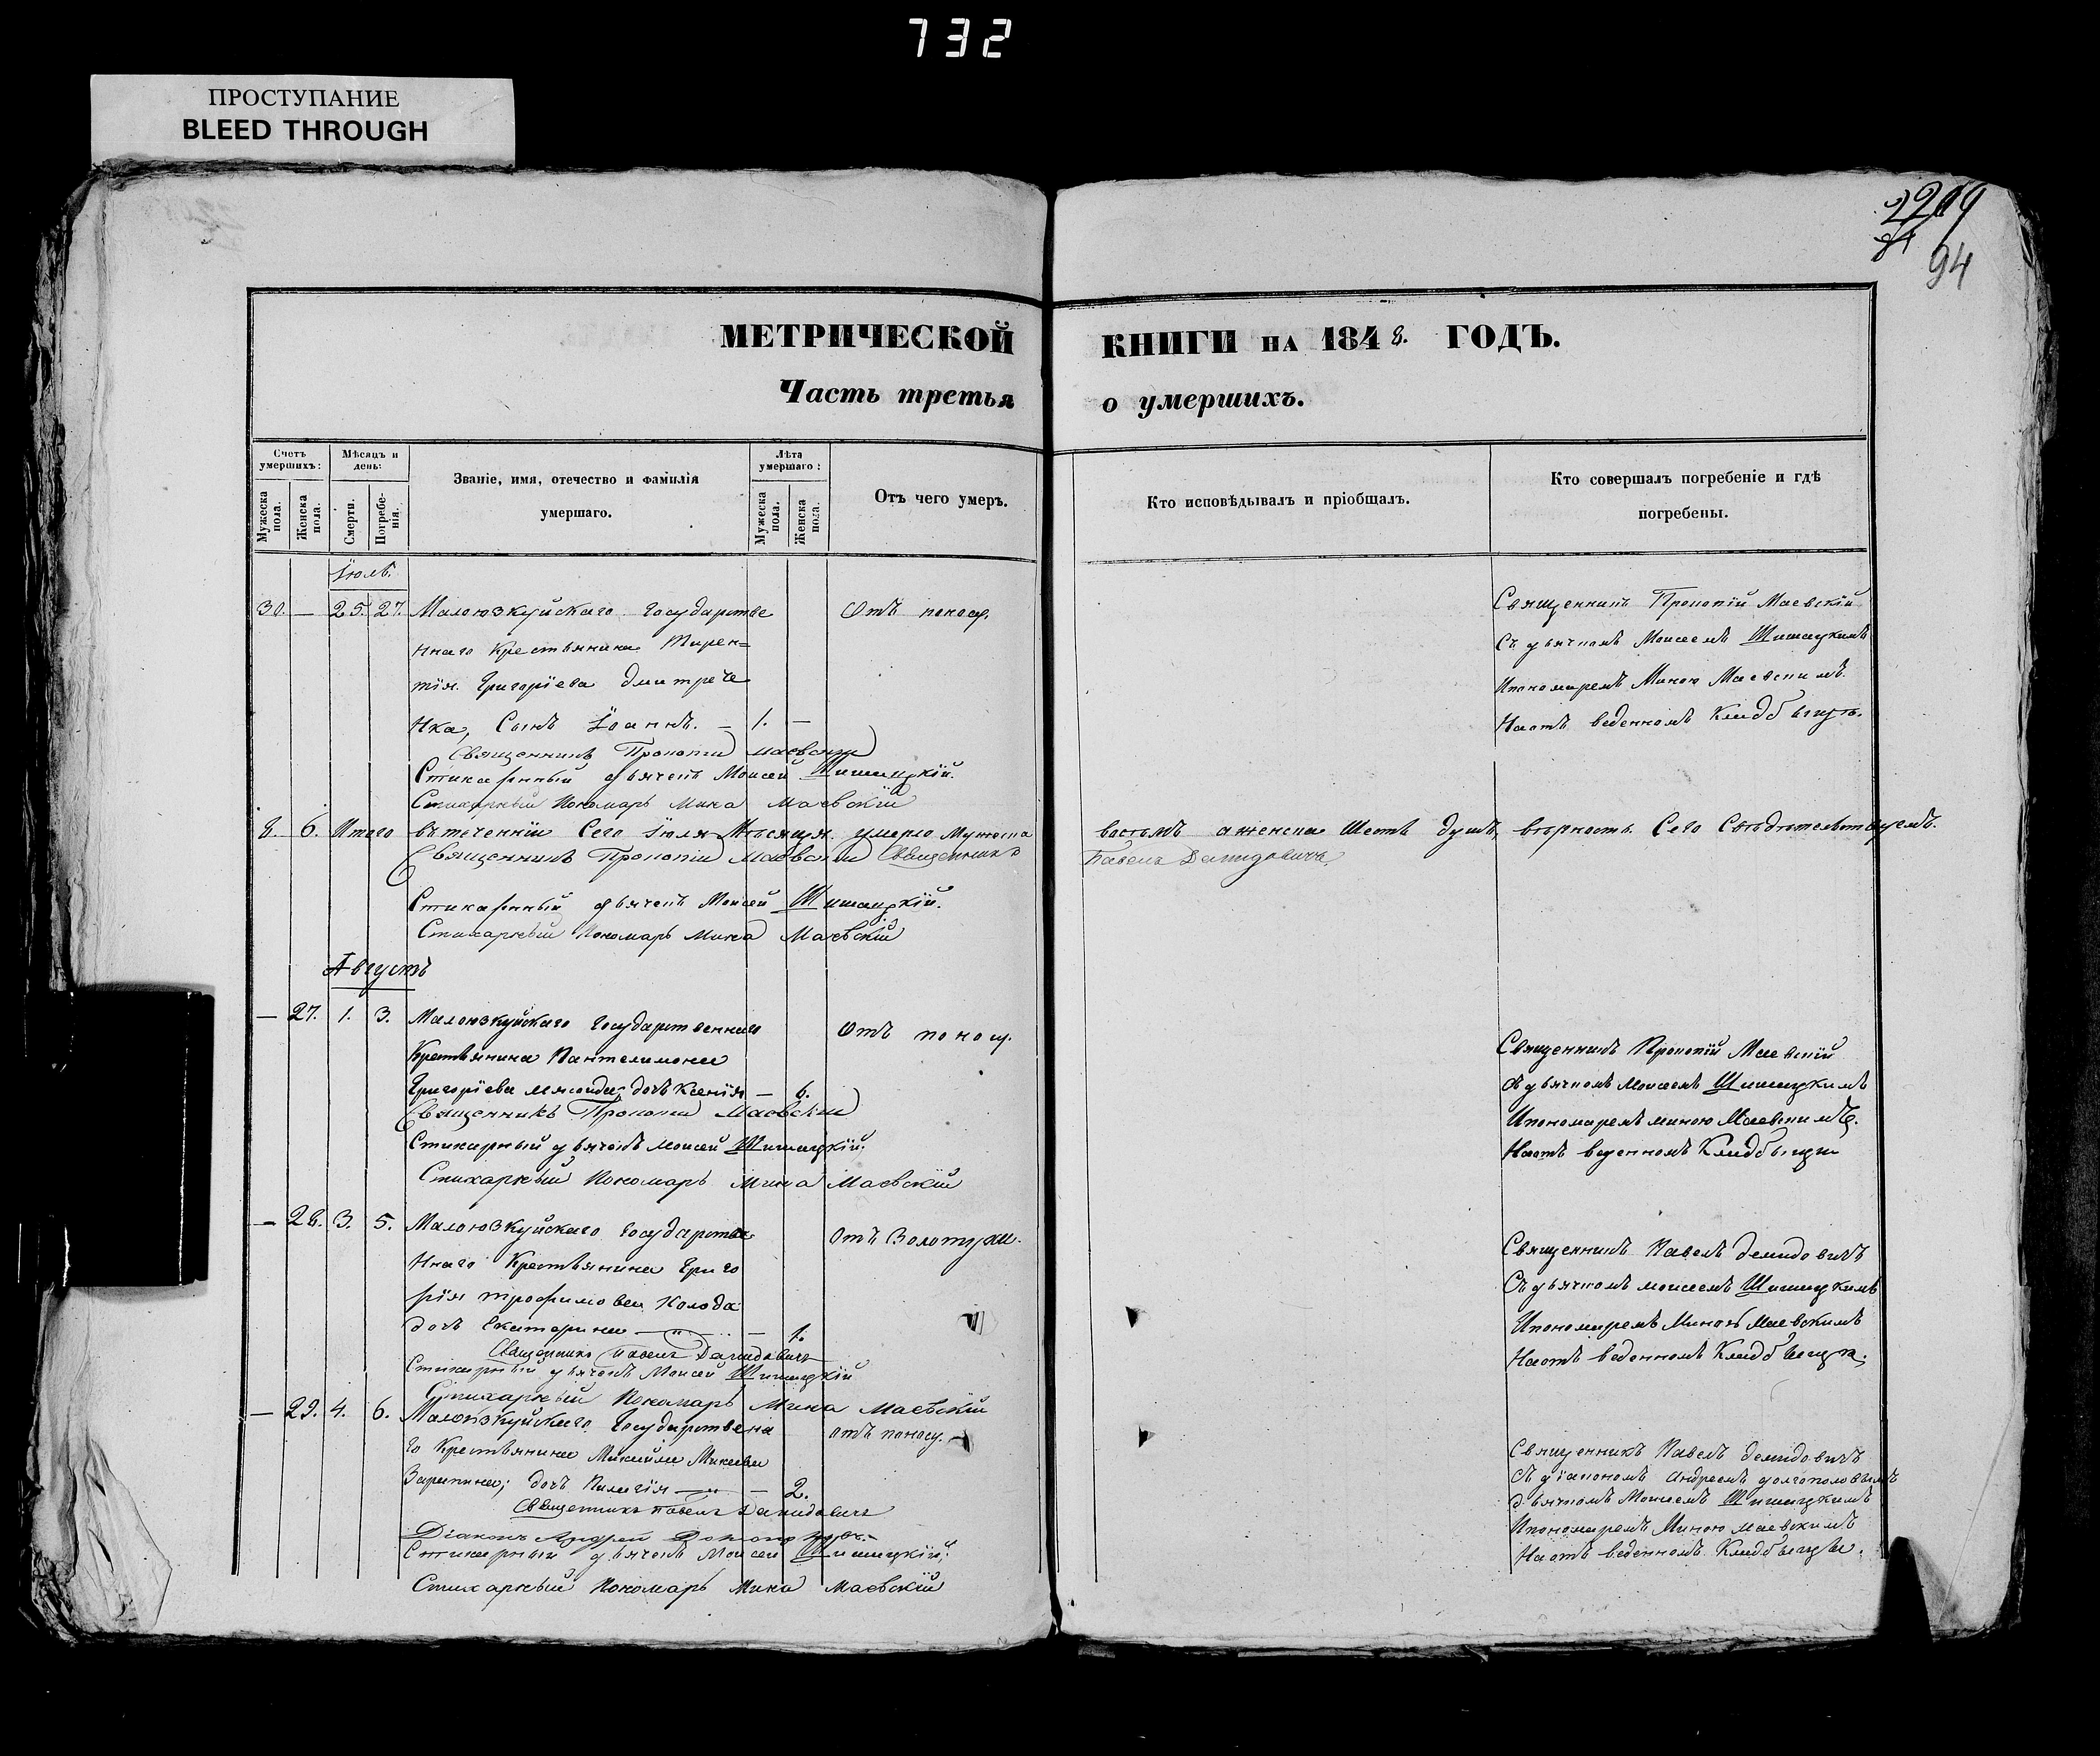 732
ПРОСТУПАНИЕ
BLEED THROUGH
94
МЕТРИЧЕСКОЙ КНИГИ НА 1848. ГОДЪ.
Часть третья о умершихъ.
Счетъ умершихъ:
Мужеска пола.
Женска пола.
Мѣсяцъ и день:
Смерти.
Погребенія.
Званіе, имя, отечество и фамилія
умершаго.
Лѣта умершаго:
Мужеска пола.
Женска пола.
Отъ чего умеръ.
Кто исповѣдывалъ и пріобщалъ.
Кто совершалъ погребеніе и гдѣ
погребены.
Іюль.
30. — 25. 27. Малоюзкуйскаго государстве
ннаго Крестьянина Тирен=
тія Григоріева Дмитрече
нка, Сынъ Іоаннъ. — 1. —
Отъ поносу.
Священникъ Прокопій Маевскій
Съ дьячкомъ Моисеемъ Шишацкимъ
Ипономаремъ Миною Маевскимъ.
Наотъ веденномъ Кладбыщъ.
Священникъ Прокопій Маевскій
Стихарный дьячекъ Моисей Шишацкій.
Стихарный Пономарь Мина Маевскій
8. 6. Итого втеченіи Сего Іюля Мѣсяца умерло Мужеска
восьмъ аженска Шесть душъ, вѣрность Сего Свѣдѣтельствуемъ.
Священникъ Прокопій Маевскій Священникъ
Павелъ Демидовичъ
Стихарный дьячекъ Моисей Шишацкій.
Стихарный Пономарь Мина Маевскій
Августъ
— 27. 1. 3. Малоюзкуйскаго государственнаго
Крестьянина Пантелимона
Григоріева дочь Ксенія — 6.
Отъ поносу.
Священникъ Прокопій Маевскій
Съ дьячкомъ Моисеемъ Шишацкимъ
Ипономаремъ Миною Маевскимъ.
Наотъ веденномъ Кладбыщи
Священникъ Прокопій Маевскій
Стихарный дьячекъ Моисей Шишацкій,
Стихарный Пономарь Мина Маевскій
— 28. 3. 5. Малоюзкуйскаго государстве
ннаго Крестьянина Григо
рія Трофимова Колода
дочь Екатерина — 1.
Отъ Золотухи.
Священникъ Павелъ Демидовичъ
Съ дьячкомъ Моисеемъ Шишацкимъ
Ипономаремъ Миною Маевскимъ
Наотъ веденномъ Кладбыщи.
Священникъ Павелъ Демидовичъ
Стихарный дьячекъ Моисей Шишацкій
Стихарный Пономарь Мина Маевскій
— 29. 4. 6. Малоюзкуйскаго Государственна
го Крестьянина
дочь Пелагія — 2.
отъ поносу.
Священникъ Павелъ Демидовичъ
Съ діакономъ Андреемъ Долгополовымъ
дьячкомъ Моисеемъ Шишацкимъ
Ипономаремъ Миною Маевскимъ
Наотъ веденномъ Кладбыщы.
Священникъ Павелъ Демидовичъ
Діаконъ Андрей
Стихарный дьячекъ Моисей Шишацкій,
Стихарный Пономарь Мина Маевскій